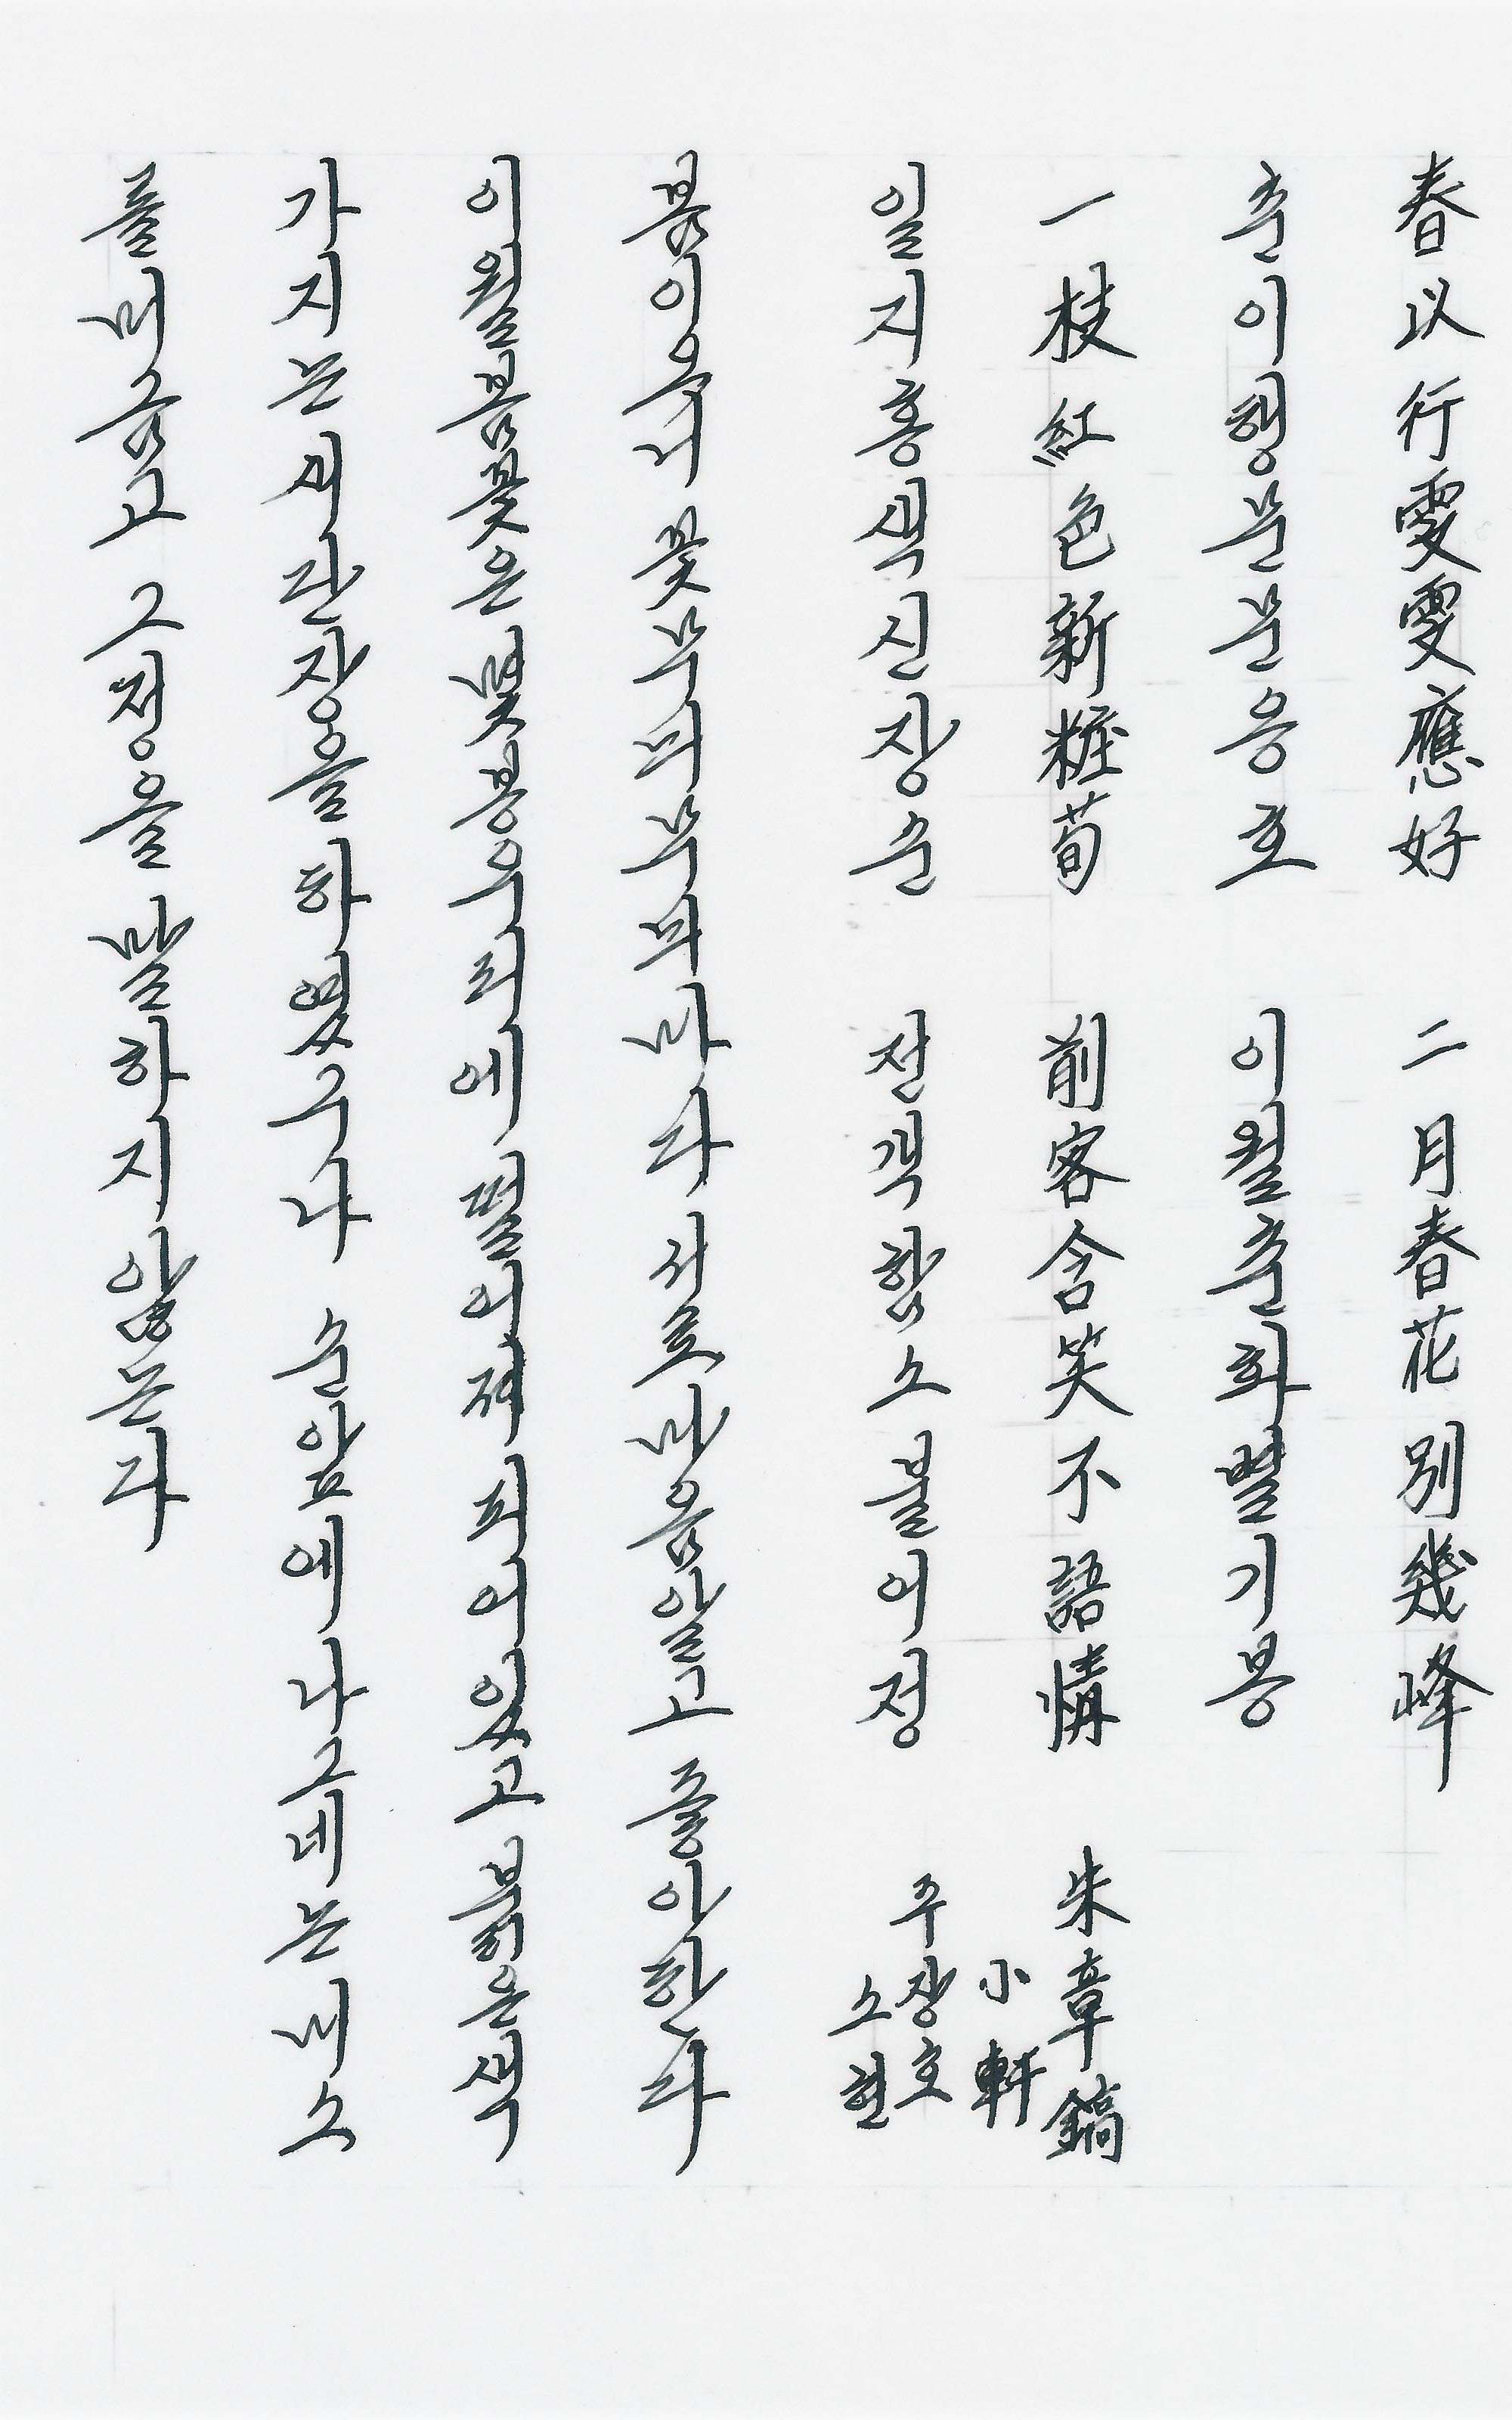 春以行雯雯應好 二月春花別幾峰
춘이행문문응호 이월춘화별기봉
一枝紅色新粧荀 前客含笑不語情 朱章鎬
小軒
일지홍색신장순 전객함소불어정 주장호
소헌
봄이오니 꽃무늬무늬마다 서로마음알고 좋아한다
이월봄꽃은 몇봉우리에 떨어져 피어있고 붉은색
가지는 새단장을 하였구나 순앞에 나그네는 미소
를 머금고 그정을 말하지 않는다